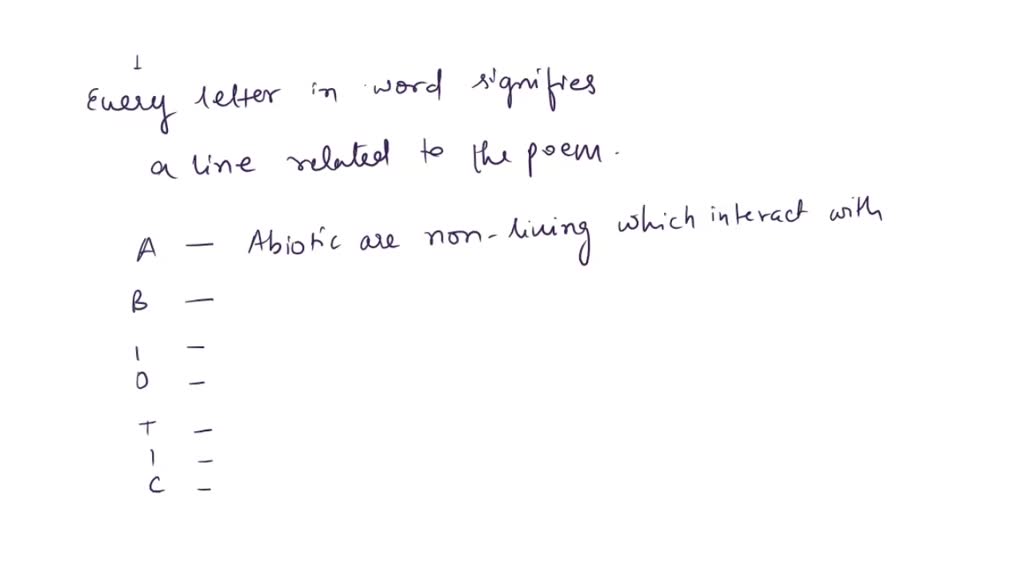 ↓
Every letter in word signifies
a line related to the poem.
A — Abiotic are non-living which interact with
B —
I —
O —
T —
I —
C —